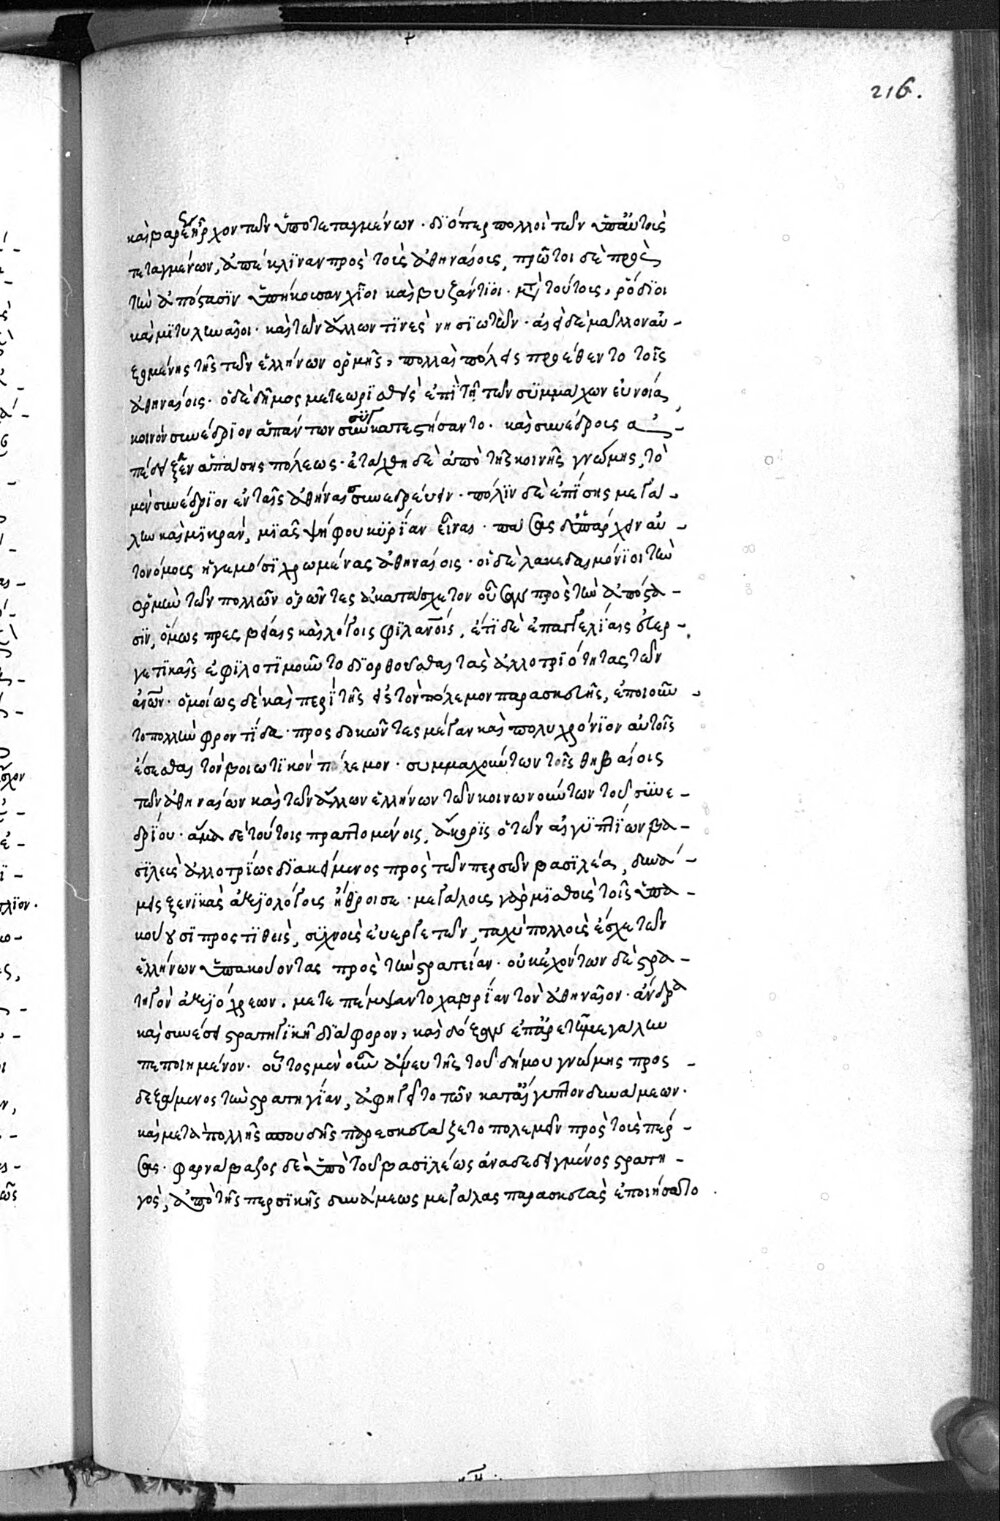 216.
καὶ βαρέως ἦρχον τῶν ὑποτεταγμένων· διόπερ πολλοὶ τῶν ὑπ' αὐτοὺς
τεταγμένων, ἀπέκλιναν πρὸς τοὺς ἀθηναίους, πρῶτοι δὲ πρὸς
τὴν ἀπόστασιν ὑπήκουσαν χῖοι καὶ βυζάντιοι· μετὰ τούτους, ῥόδιοι
καὶ μιτυληναῖοι· καὶ τῶν ἄλλων τινὲς νησιωτῶν· ἀεὶ δὲ μᾶλλον αὐ-
ξομένης τῆς τῶν ἑλλήνων ὁρμῆς, πολλαὶ πόλεις προσέθεντο τοῖς
ἀθηναίοις· ὁ δὲ δῆμος μετεωρισθεὶς ἐπὶ τῇ τῶν συμμάχων εὐνοίᾳ,
κοινὸν συνέδριον ἁπάντων συμμάχων κατεστήσαντο· καὶ συνέδρους ἀ-
πέδειξεν ἁπάσης πόλεως· ἐτάχθη δὲ ἀπὸ τῆς κοινῆς γνώμης, τὸ
μὲν συνέδριον ἐν ταῖς ἀθήναις συνεδρεύειν· πόλιν δὲ ἐπίσης μεγά-
λην καὶ μικρὰν, μιᾶς ψήφου κυρίαν εἶναι· πάσας δ' ὑπάρχειν αὐ-
τονόμους ἡγεμόσι χρωμένας ἀθηναίοις· οἱ δὲ λακεδαιμόνιοι τὴν
ὁρμὴν τῶν πολλῶν ὁρῶντες ἀκατάσχετον οὖσαν πρὸς τὴν ἀπόστα-
σιν, ὅμως πρεσβείαις καὶ λόγοις φιλανοις, ἔτι δὲ ἐπαγγελίαις εὐερ-
γετικαῖς ἐφιλοτιμοῦντο διορθοῦσθαι τὰς ἀλλοτριότητας τῶν
ἀνων· ὁμοίως δὲ καὶ περὶ τῆς εἰς τὸν πόλεμον παρασκευῆς, ἐποιοῦν-
το πολλὴν φροντίδα· προσδοκῶντες μέγαν καὶ πολυχρόνιον αὐτοῖς
ἔσεσθαι τὸν βοιωτικὸν πόλεμον· συμμαχούντων τοῖς θηβαίοις
τῶν ἀθηναίων καὶ τῶν ἄλλων ἑλλήνων τῶν κοινωνούντων τοῦ συνε-
δρίου· ἅμα δὲ τούτοις πραττομένοις, ἄκορις ὁ τῶν αἰγυπτίων βα-
σιλεὺς ἀλλοτρίως διακείμενος πρὸς τῶν περσῶν βασιλέα, δυνά-
μεις ξενικὰς ἀξιολόγους ἤθροισε· μεγάλους γὰρ μισθοὺς τοῖς ὑπα-
κούουσι προστιθεὶς, συχνοὺς εὐεργετῶν, ταχὺ πολλοὺς ἔσχε τῶν
ἑλλήνων ὑπακούοντας πρὸς τὴν στρατείαν· οὐκ ἔχων τῶν δὲ στρα-
τηγὸν ἀξιόχρεων, μετεπέμψαντο χαβρίαν τὸν ἀθηναῖον· ἄνδρα
καὶ συνέσει στρατηγικῇ διάφορον, καὶ δόξαν ἐπ' ἀρετῇ μεγάλην
πεποιημένον· οὗτος μὲν οὖν ἄνευ τῆς τοῦ δήμου γνώμης προς-
δεξάμενος τὴν στρατηγίαν, ἀφηγεῖτο τῶν κατ' αἴγυπτον δυνάμεων·
καὶ μετὰ πολλῆς σπουδῆς παρεσκευάζετο πολεμεῖν πρὸς τοὺς πέρ-
σας· φαρνάβαζος δὲ ὑπὸ τοῦ βασιλέως ἀναδεδειγμένος στρατη-
γὸς, ἀπὸ τῆς περσικῆς δυνάμεως μεγάλας παρασκευὰς ἐποιήσατο